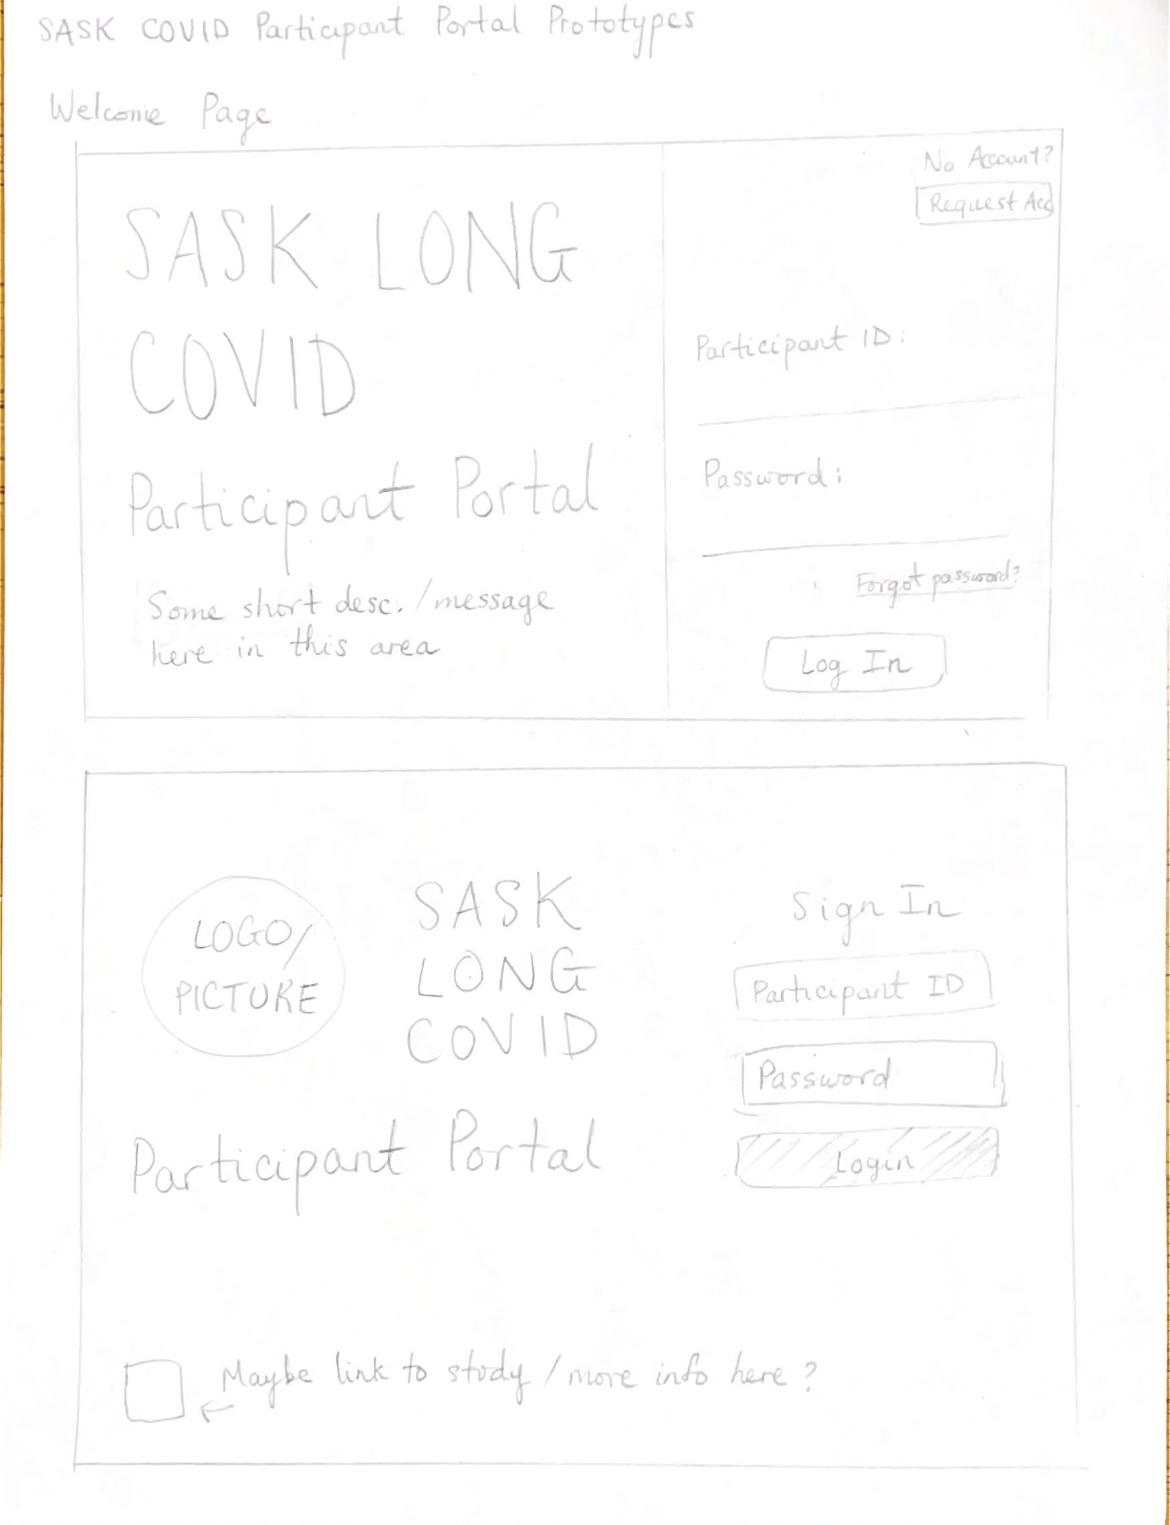 SASK COVID Participant Portal Prototypes
Welcome Page
No Account?
Request Acc
SASK LONG
COVID
Participant Portal
Some short desc. / message
here in this area
Participant ID:
Password:
Forgot password?
Log In
LOGO/
PICTURE
SASK
LONG
COVID
Participant Portal
Sign In
Participant ID
Password
Login
Maybe link to study / more info here?